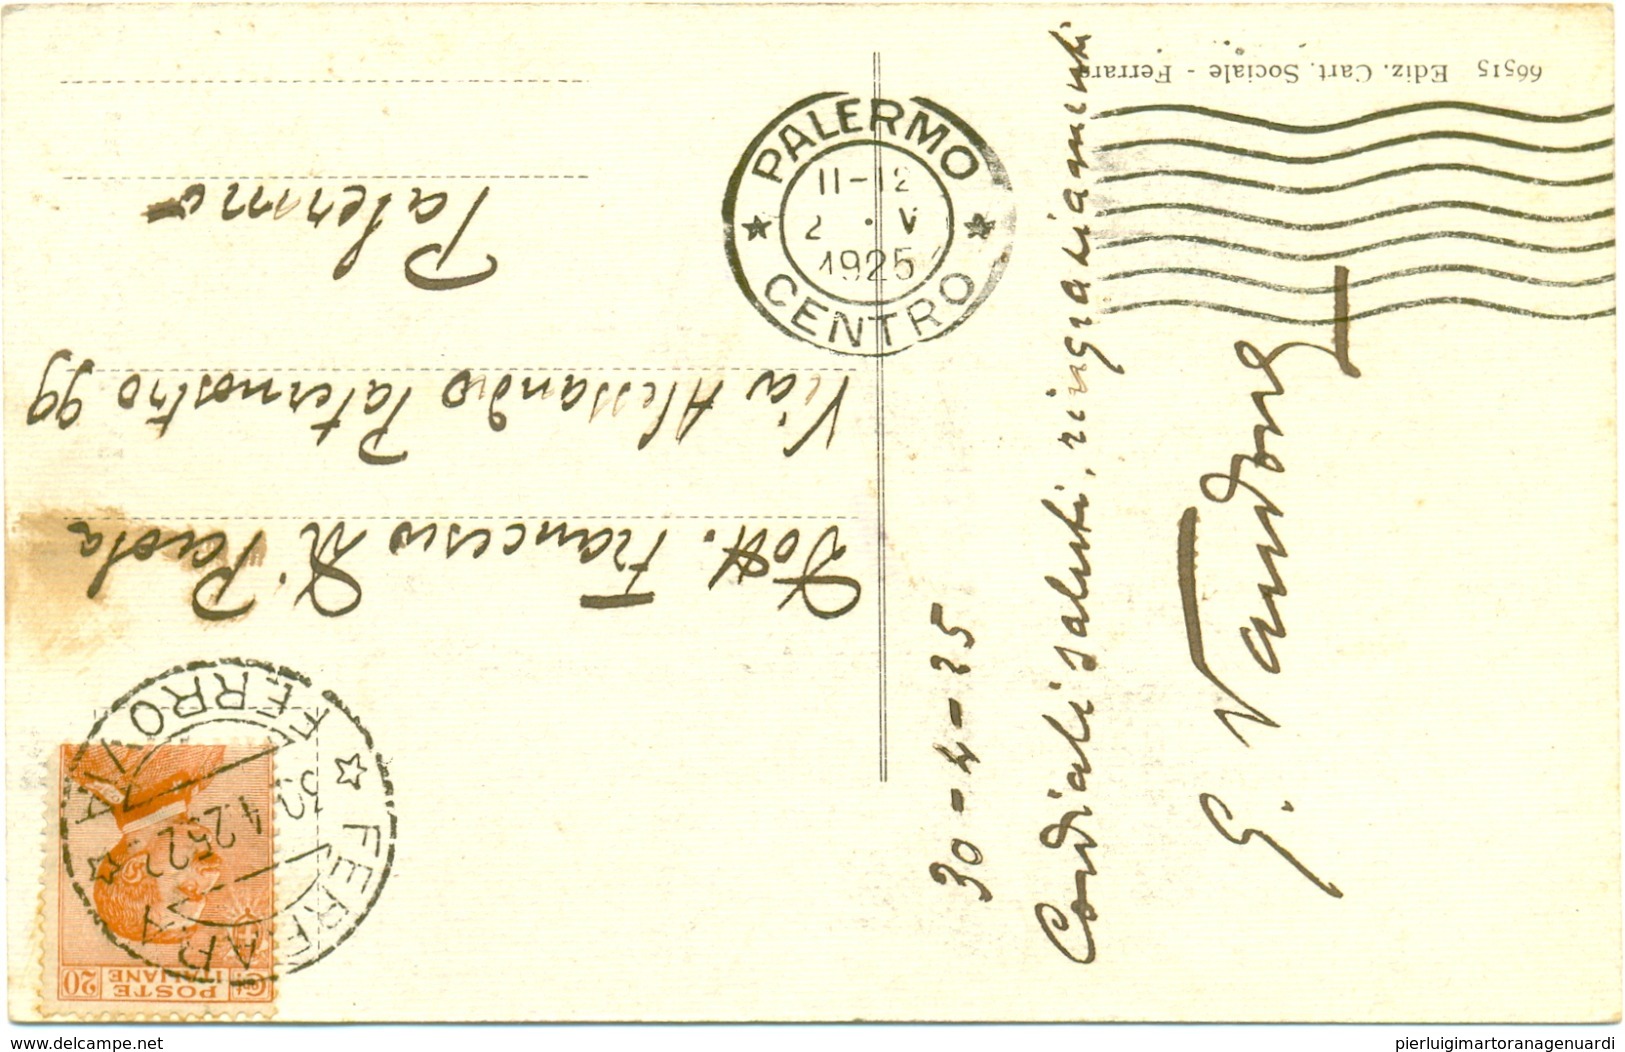 66515 Ediz. Cart. Sociale - Ferrara
30-4-25
Cordiali saluti, ringraziamenti
PALERMO
11-12
2 . V
1925
CENTRO
FERRARA
FERROVIA
POSTE
ITALIANE
20
Dott. Francesco Di Paola
Via Alessandro Paternostro 99
Palermo
delcampe.net
pierluigimartoranagenuardi